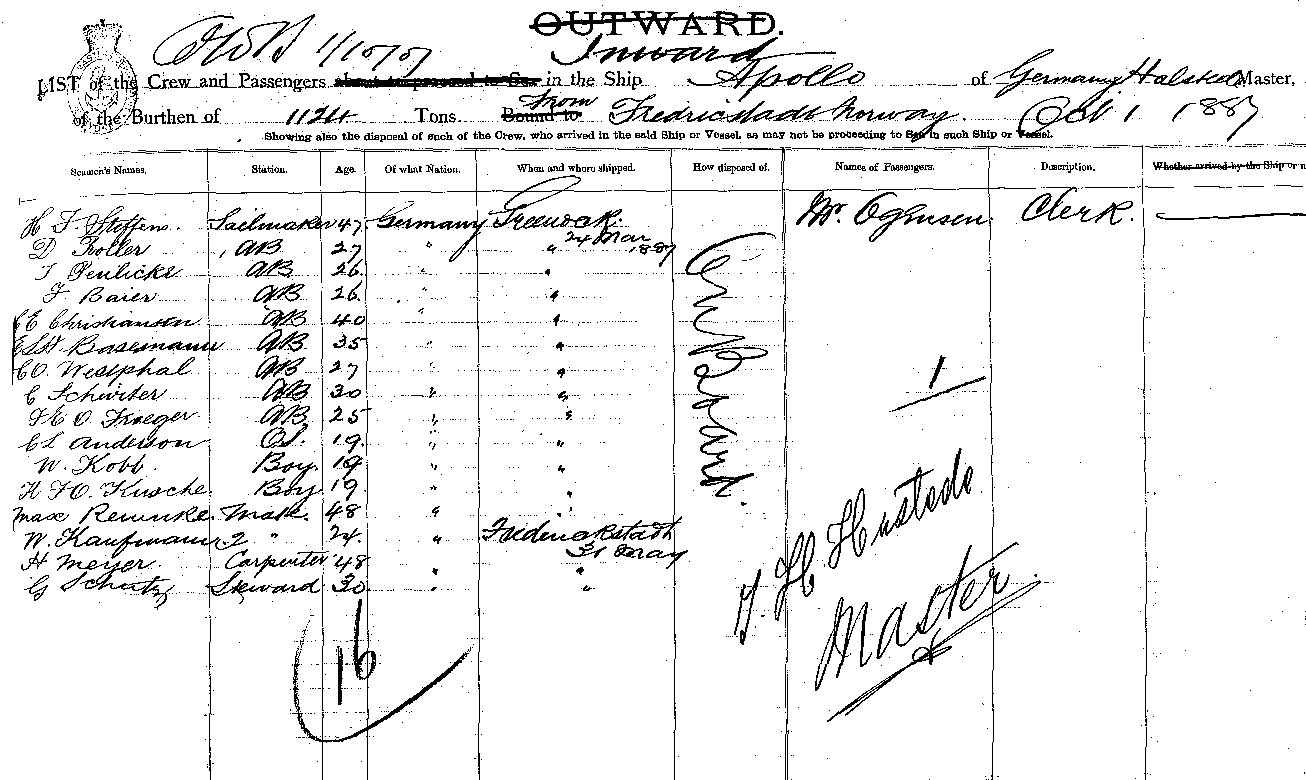 OUTWARD.
Inward
1/10/87
LIST of the Crew and Passengers about to proceed to Sea in the Ship Apollo of Germany Halsted Master,
of the Burthen of 1124 Tons Bound to from Fredricstadt Norway Oct 1 1887
Showing also the disposal of such of the Crew, who arrived in the said Ship or Vessel, as may not be proceeding to Sea in such Ship or Vessel.
Seamen's Names. Station. Age. Of what Nation. When and where shipped. How disposed of. Names of Passengers. Description. Whether arrived by the Ship or n
H F Steffens Sailmaker 47 Germany Greenock Mr. Clerk.
24 Mar 1887
D Roller AB 27 " "
AB 26 " "
F Baier AB 26 " "
CE Christiansen AB 40 " "
Basemann AB 35 " "
CO Westphal AB 27 " "
C AB 30 " "
O Kraeger AB 25 " "
CL Anderson OS. 19 " "
W. Kobb Boy 19 " "
H FO. Kusche Boy 19 " "
Max Reimke Mate. 48 "
W. Kaufmann 2 " 24 " Frederickstadt
31 May
H Meyer Carpenter 48 " "
G Schutz Steward 30 " "
On Board.
1
16
H Hustede
Master